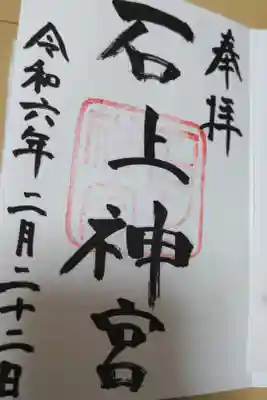 奉拝
石上神宮
令和六年二月二十二日